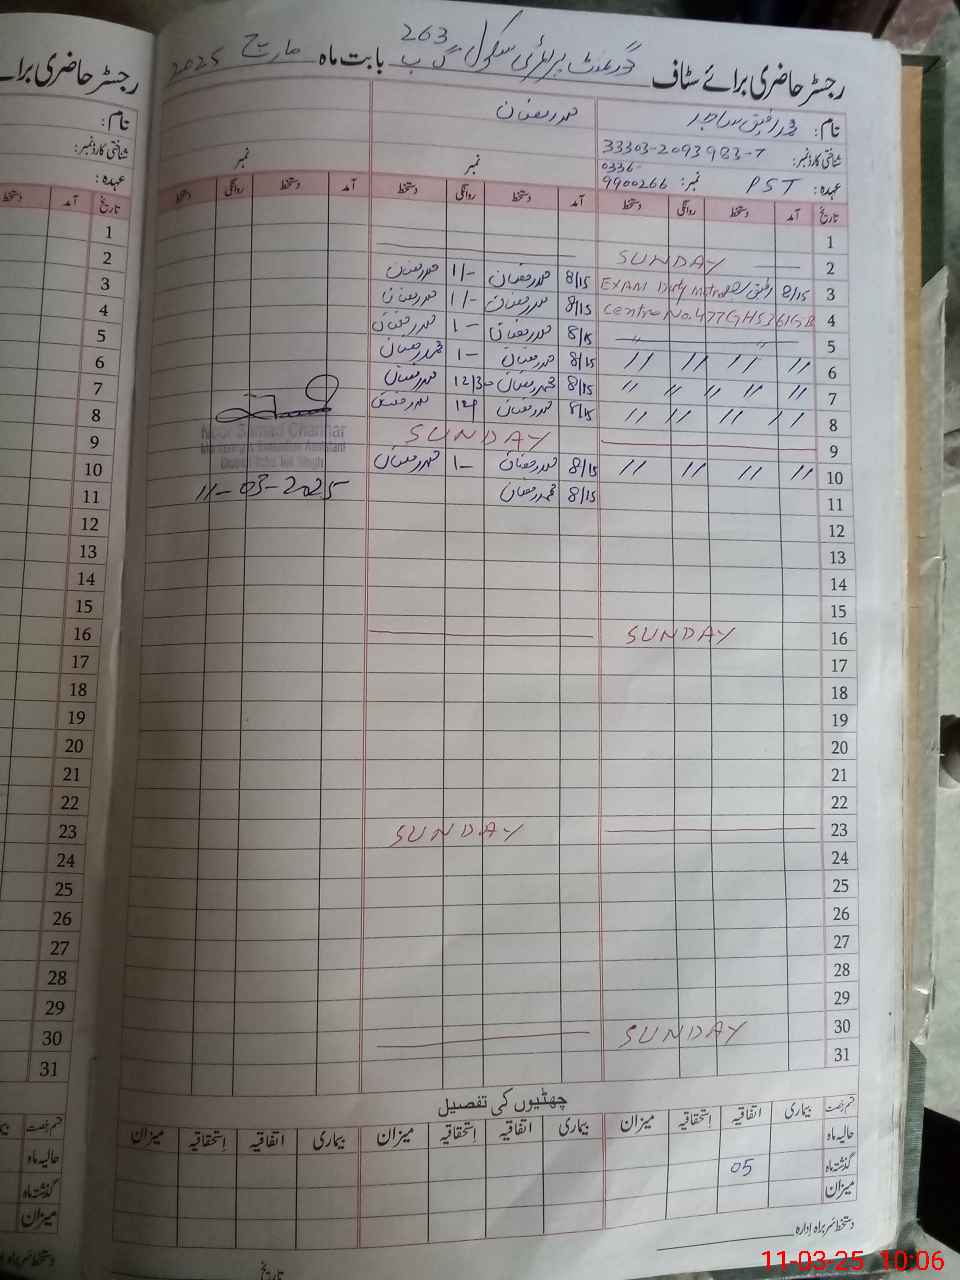 رجسٹر حاضری برائے سٹاف گورنمنٹ پرائمری سکول 263 گ ب بابت ماہ مارچ 2025
نام: محمد رفیق ساجد محمد رمضان
شناختی کارڈ نمبر: 33303-2093983-7
عہدہ: PST نمبر: 0336-9900266 نمبر نمبر
تاریخ آمد دستخط روانگی دستخط آمد دستخط روانگی دستخط آمد دستخط روانگی دستخط
1
2 SUNDAY
3 8/15 EXAM Duty 8/15 محمد رمضان 1/- محمد رمضان
4 Centre No. 477 GHS 361GB 8/15 محمد رمضان 1/- محمد رمضان
5 " " 8/15 محمد رمضان 1- محمد رمضان
6 // // // // 8/15 محمد رمضان 1- محمد رمضان
7 " " " " " 8/15 محمد رمضان 12/30 محمد رمضان
8 // // // // 8/15 محمد رمضان محمد رمضان
9 SUNDAY
10 // // // // 8/15 محمد رمضان 1- محمد رمضان
11 8/15 محمد رمضان
Noor Samad Channar
Monitoring & Evaluation Assistant
District Toba Tek Singh
11-03-2025
12
13
14
15
16 SUNDAY
17
18
19
20
21
22
23 SUNDAY
24
25
26
27
28
29
30 SUNDAY
31
چھٹیوں کی تفصیل
قسم رخصت بیماری اتفاقیہ استحقاقیہ میزان بیماری اتفاقیہ استحقاقیہ میزان بیماری اتفاقیہ استحقاقیہ میزان
حالیہ ماہ
گذشتہ ماہ 05
میزان
دستخط سربراہ ادارہ
تاریخ
رجسٹر حاضری برائے
نام:
شناختی کارڈ نمبر:
عہدہ:
تاریخ آمد دستخط
1
2
3
4
5
6
7
8
9
10
11
12
13
14
15
16
17
18
19
20
21
22
23
24
25
26
27
28
29
30
31
قسم رخصت
حالیہ ماہ
گذشتہ ماہ
میزان
11-03-25 10:06